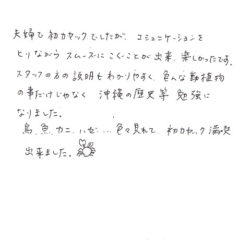 夫婦で初カヤックでしたが、コミュニケーションを
とりながら スムーズにこぐことが出来、楽しかったです。
スタッフの方の説明もわかりやすく、色んな動植物
の事だけじゃなく 沖縄の歴史等 勉強に
なりました。
鳥、魚、カニ、ハゼ…色々見れて、初カヤック満喫
出来ました。